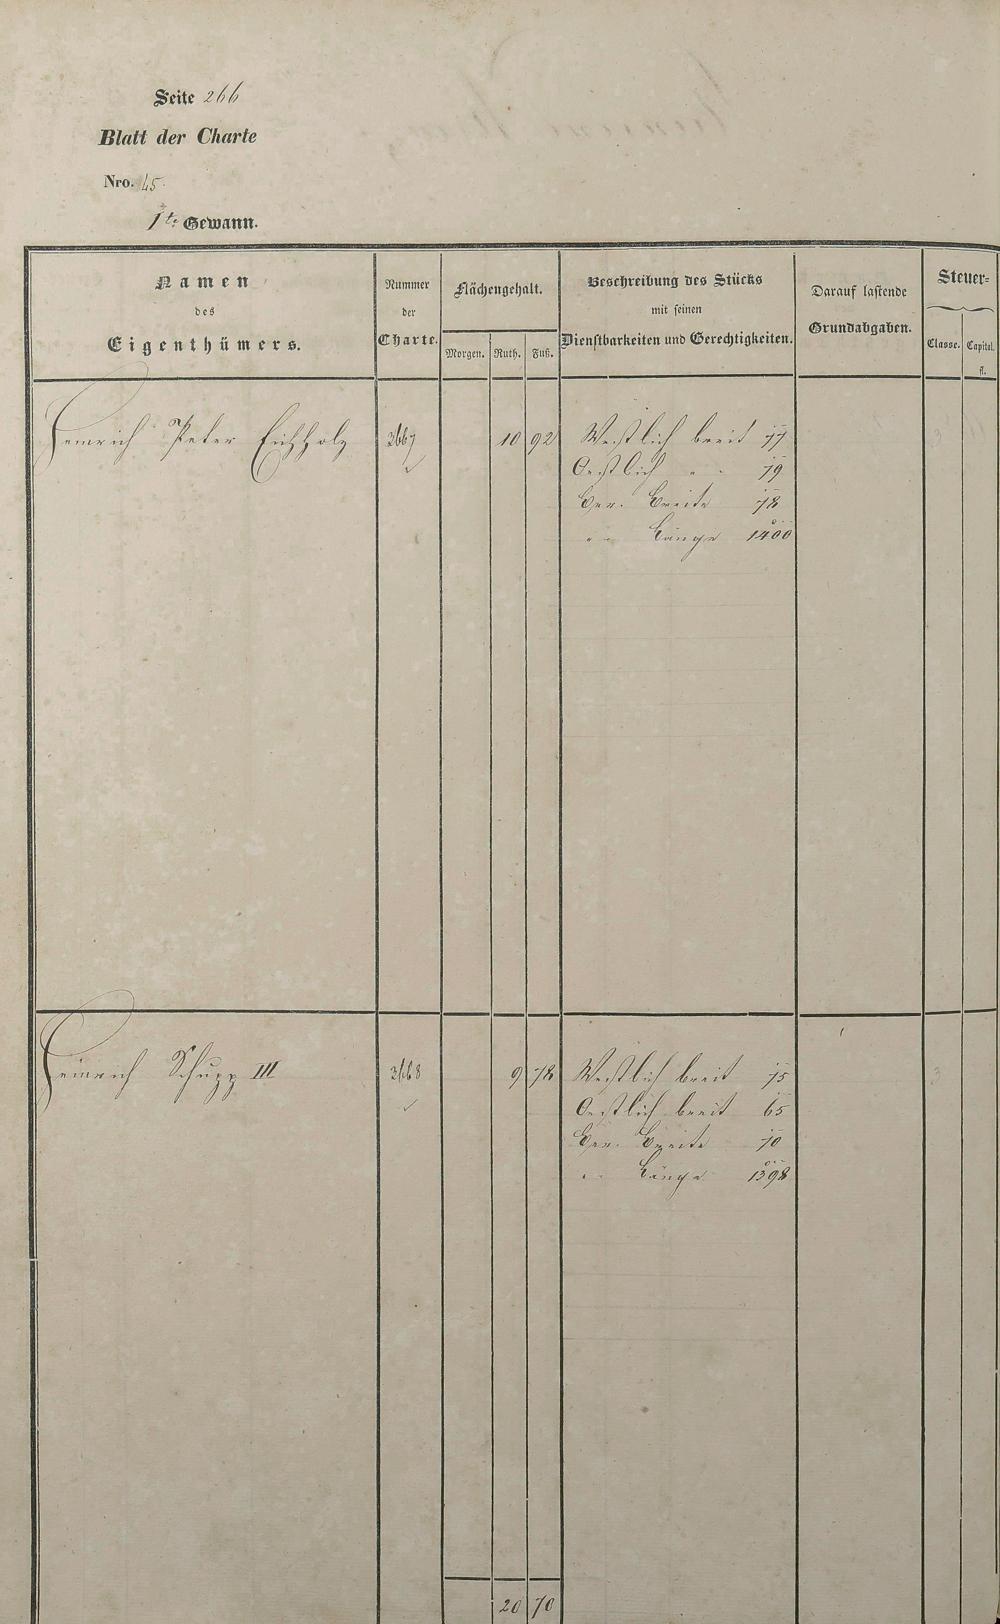 Seite 266
Blatt der Charte
Nro. 45.
1te Gewann.
Namen
des
Eigenthümers.
Nummer
der
Charte.
Flächengehalt.
Morgen. Ruth. Fuß.
Beschreibung des Stücks
mit seinen
Dienstbarkeiten und Gerechtigkeiten.
Darauf lastende
Grundabgaben.
Steuer=
Classe. Capital.
fl.
Heinrich Peter Eichholz 2667 10 92 Westlich breit 77
Oestlich " " 79
Ger. Breite 78
" " Länge 1400
Heinrich Schupp III 2668 9 78 Westlich breit 75
Oestlich breit 65
Ger. Breite 70
" " Länge 1398
20 70